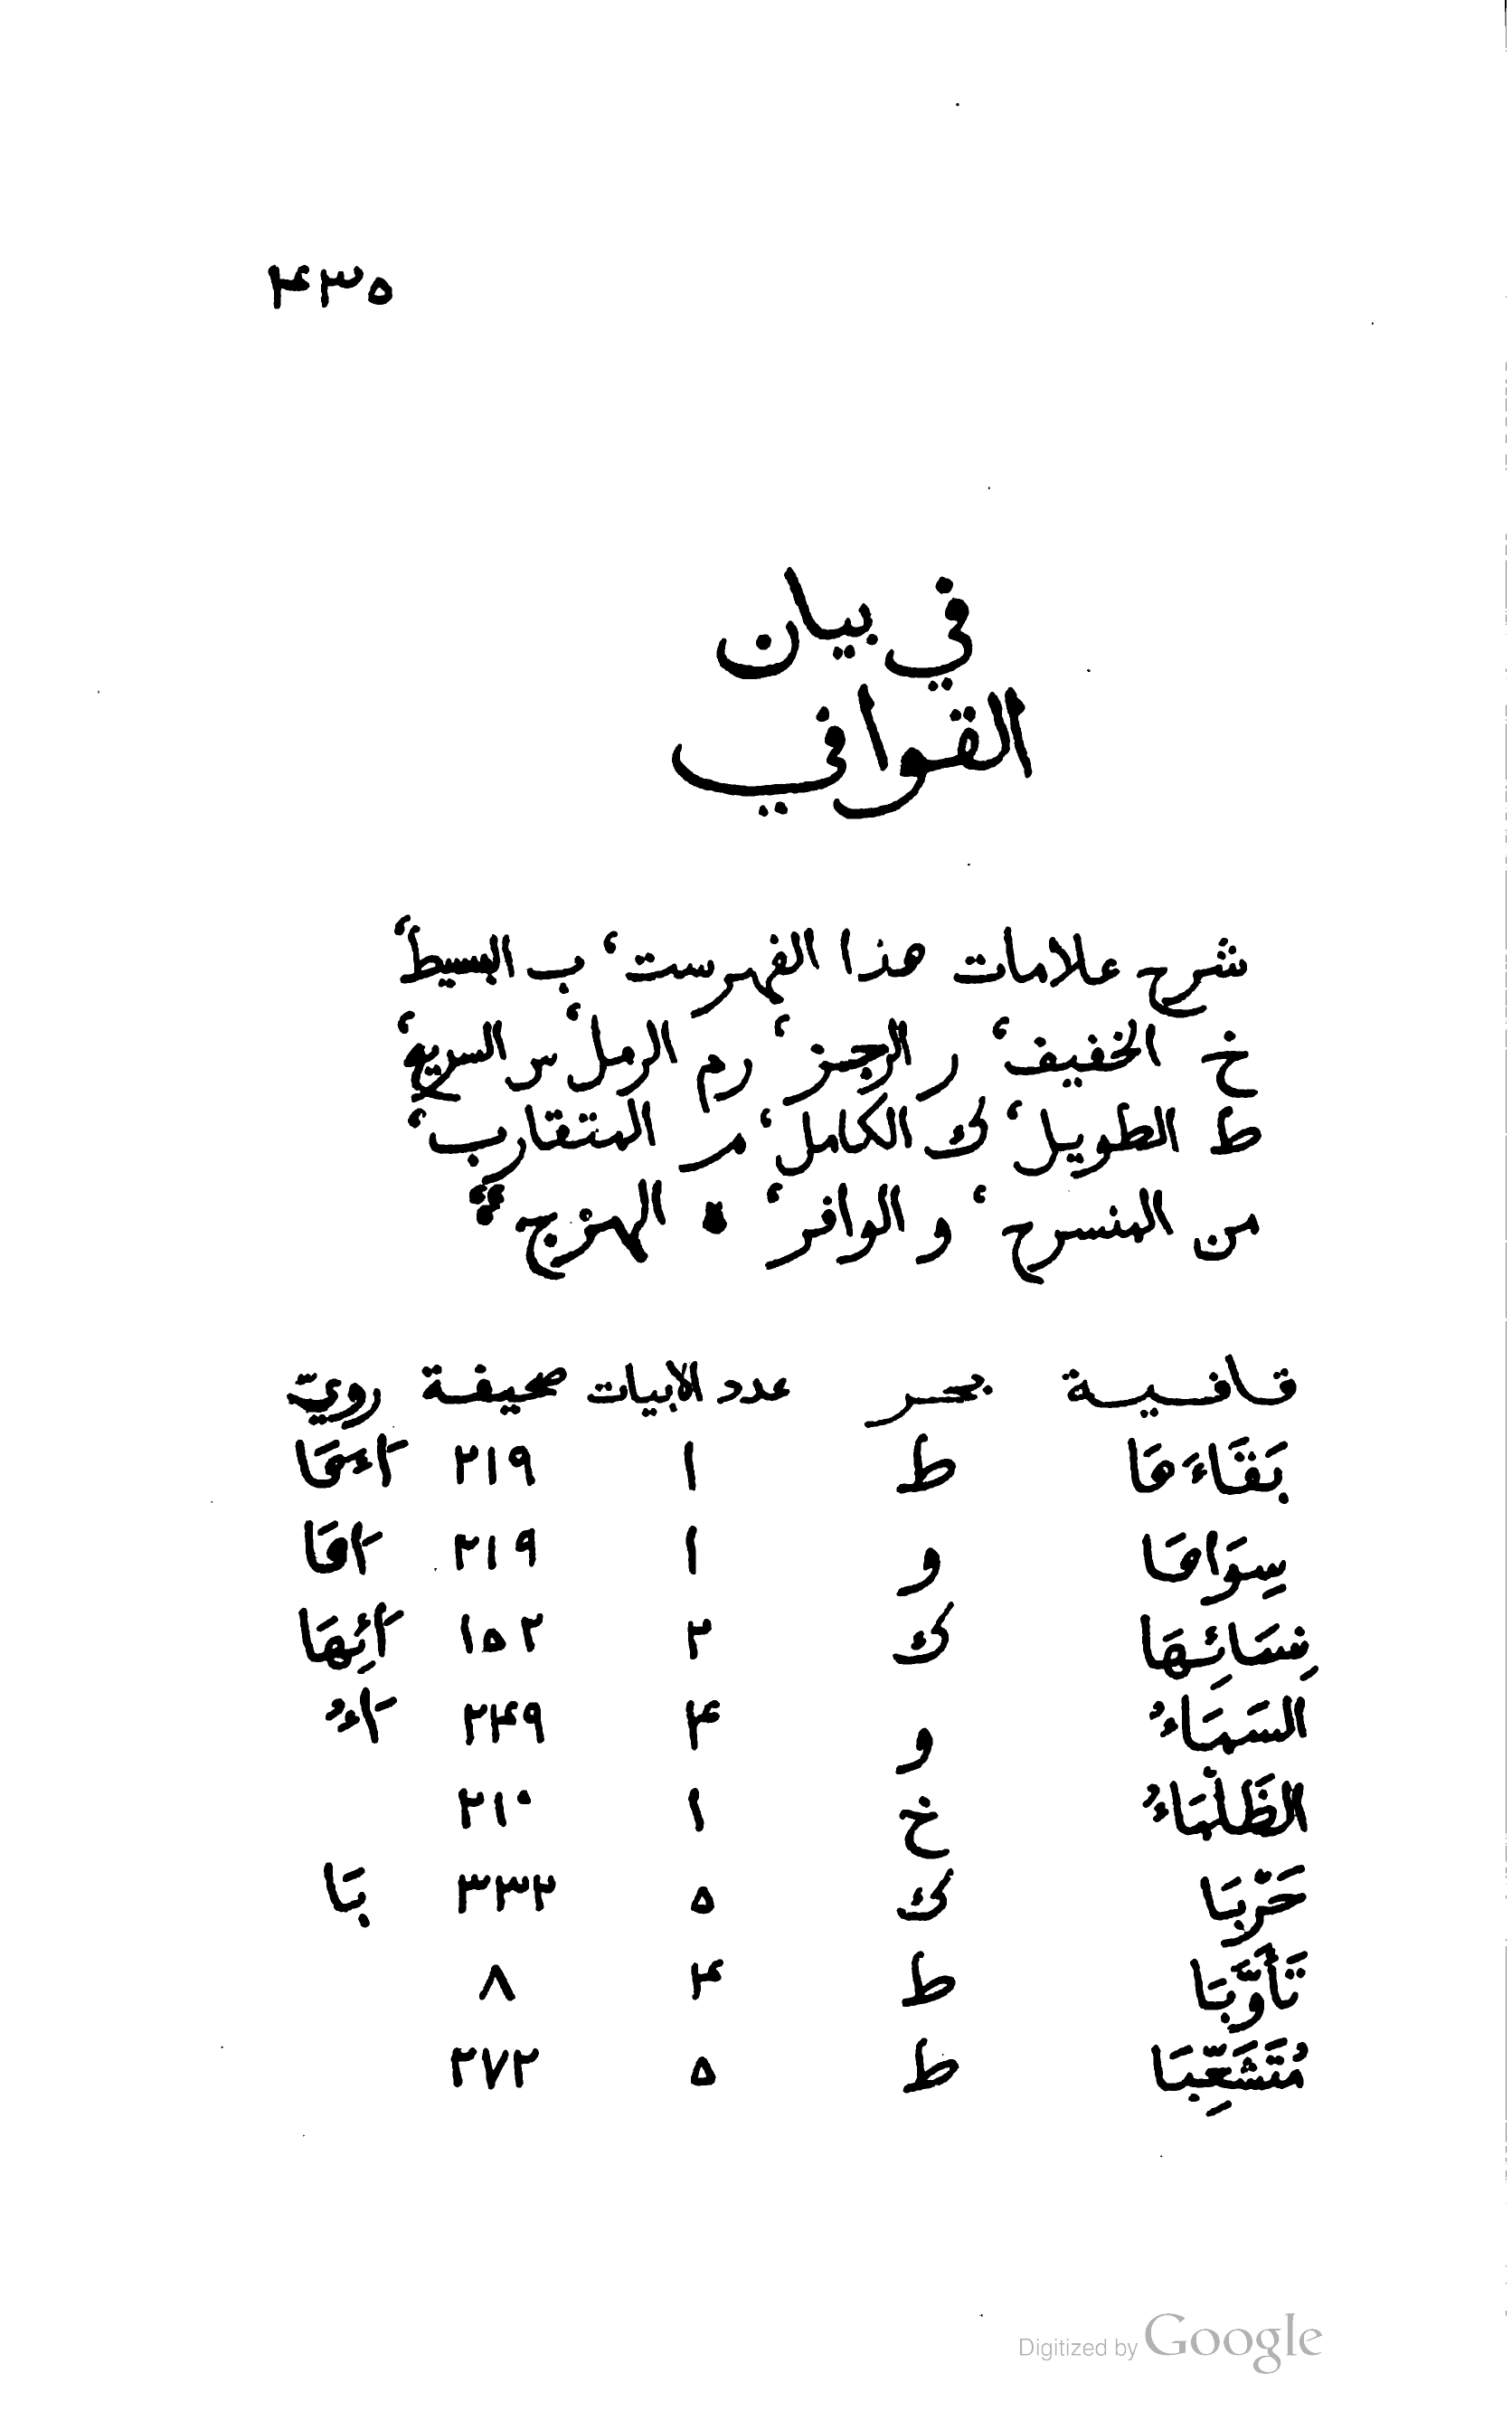 ٤٣٥
في بيان
القوافي
شرح علامات هذا الفهرست، ب البسيط،
خ الخفيف، ر الرجز، رم الرمل، س السريع،
ط الطويل، ك الكامل، م المتقارب،
من المنسرح، و الوافر، ه الهزج
قافية بحر عدد الابيات صحيفة رويّ
بَقَاءَهَا ط ١ ٢١٩ َاءَهَا
سِوَاهَا و ١ ٢١٩ َاهَا
نِسَائِهَا ك ٢ ١٥٢ َائِهَا
السَمَاءُ و ٤ ٢٤٩ َاءُ
الظَلْمَاءُ خ ١ ٢١٠
حَرْبَا ك ٥ ٣٣٢ بَا
تَأَوَّبَا ط ٤ ٨
مُتَشَعِّبَا ط ٥ ٢٧٢
Digitized by Google